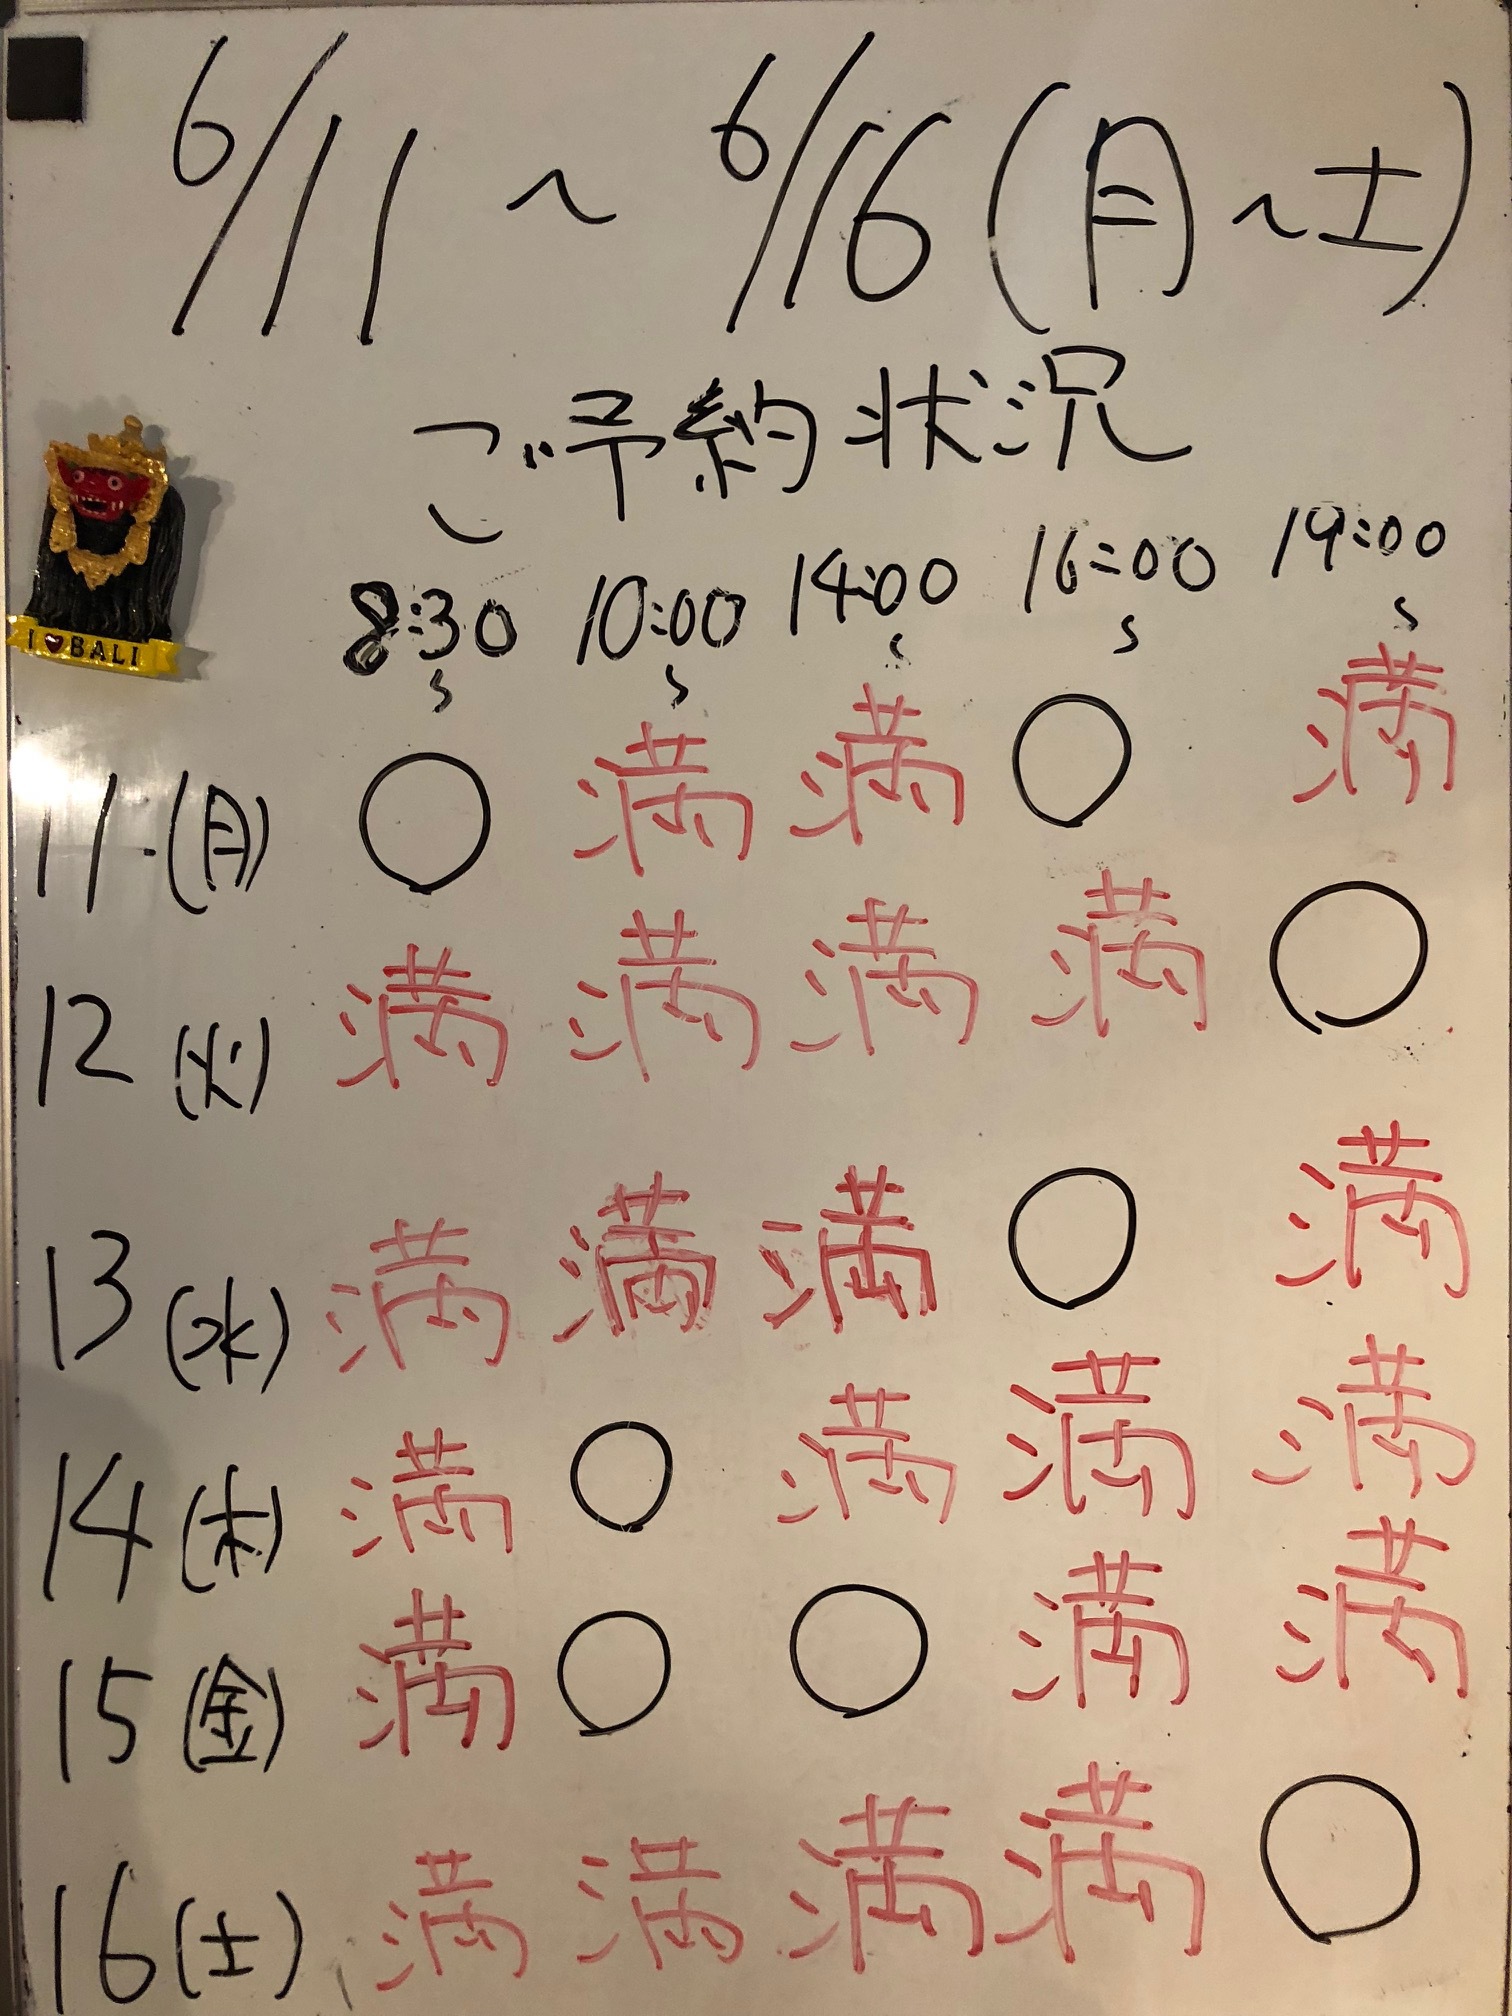 6/11 ~ 6/16 (月~土)
ご予約状況
8:30~ 10:00~ 14:00~ 16:00~ 19:00~
I ♥ BALI
11(月) ○ 満 満 ○ 満
12(火) 満 満 満 満 ○
13(水) 満 満 満 ○ 満
14(木) 満 ○ 満 満 満
15(金) 満 ○ ○ 満 満
16(土) 満 満 満 満 ○